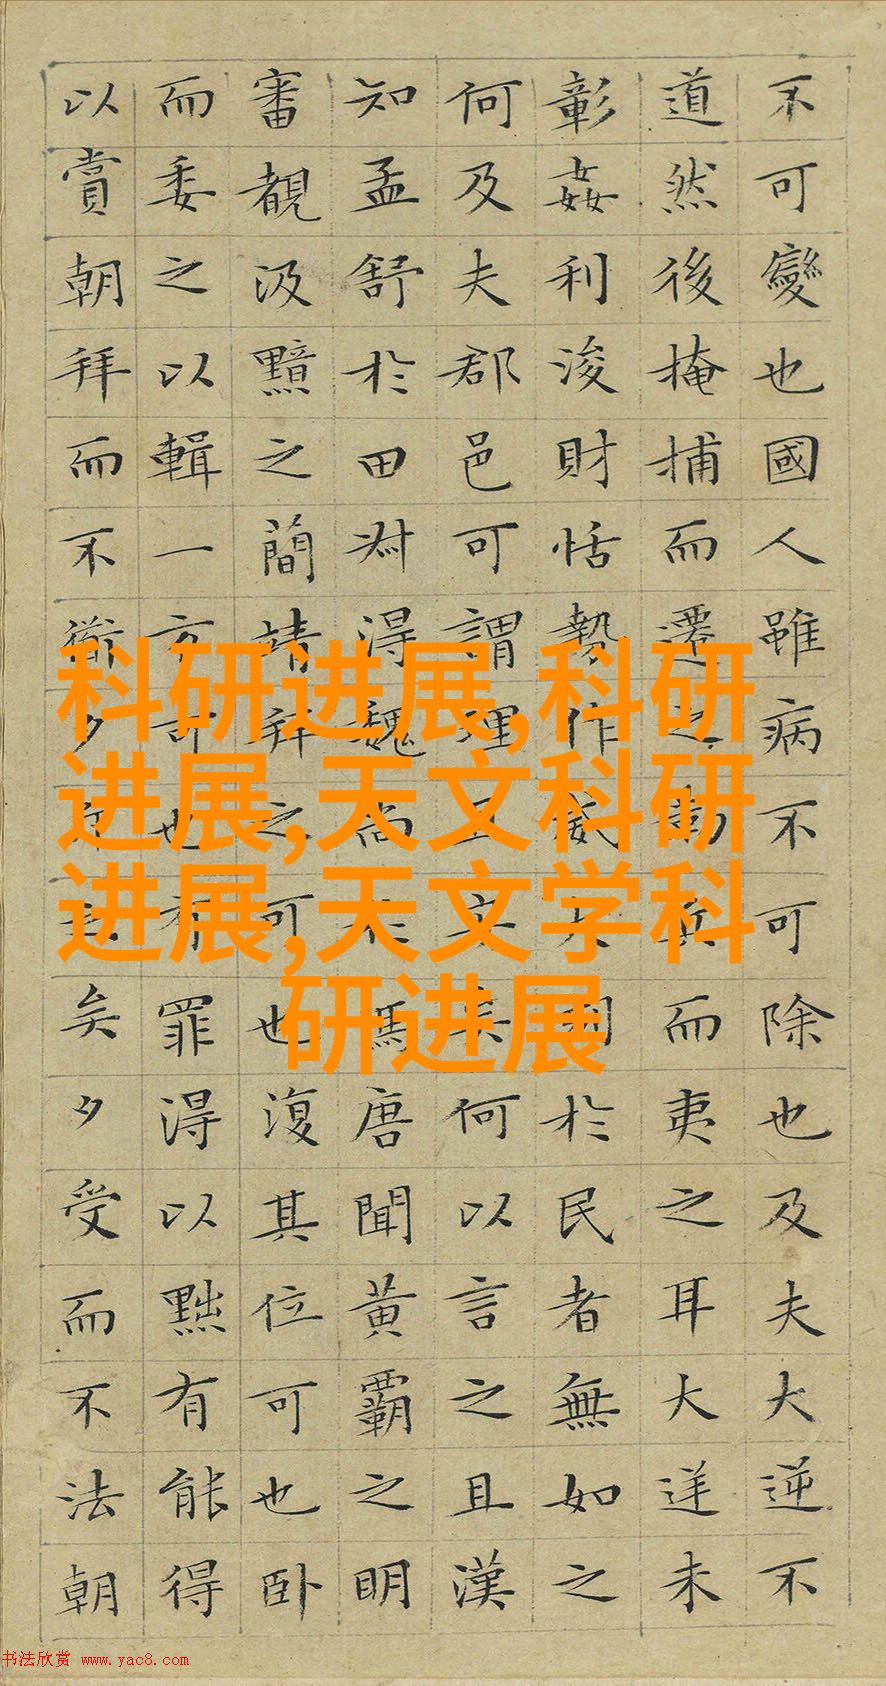 不可變也國人雖病不可除也及夫大逆不
道然後掩捕而遷之勒兵而夷之耳大逆未
彰姦利浚財怙勢作威大刻於民者無如之
何及夫郡邑可謂理且安矣何以言之且漢
知孟舒於田叔得魏尚於馮唐聞黃霸之明
審覩汲黯之簡靖拜之可也復其位可也臥
而委之以輯一方可也有罪得以黜有能得
以賞朝拜而不衜夕斥之矣夕受而不法朝
科研进展,科研
进展,天文科研
进展,天文学科
研进展
书法欣赏 www.yac8.com